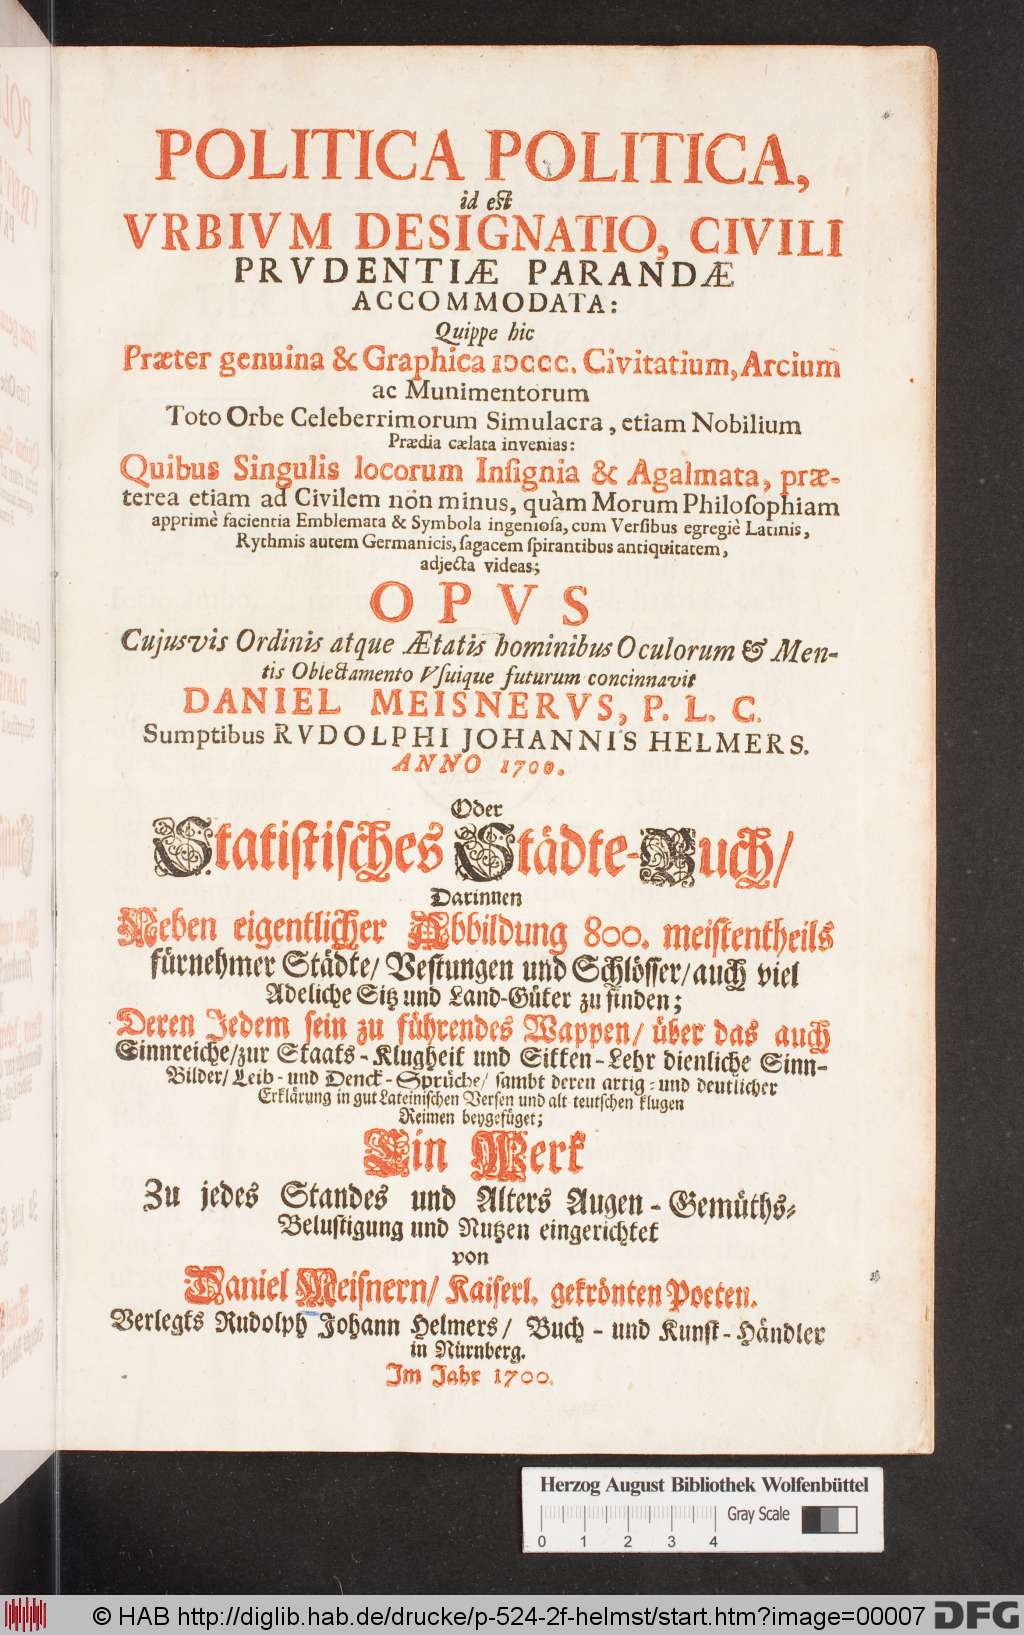 POLITICA POLITICA,
id est
VRBIVM DESIGNATIO, CIVILI
PRVDENTIÆ PARANDÆ
ACCOMMODATA:
Quippe hic
Præter genuina & Graphica IↃCCC. Civitatium, Arcium
ac Munimentorum
Toto Orbe Celeberrimorum Simulacra, etiam Nobilium
Prædia cælata invenias:
Quibus Singulis locorum Inſignia & Agalmata, præ-
terea etiam ad Civilem non minus, quàm Morum Philoſophiam
apprimè facientia Emblemata & Symbola ingenioſa, cum Verſibus egregiè Latinis,
Rythmis autem Germanicis, ſagacem ſpirantibus antiquitatem,
adjecta videas;
OPVS
Cujusvis Ordinis atque Ætatis hominibus Oculorum & Men-
tis Oblectamento Vſuique futurum concinnavit
DANIEL MEISNERVS, P. L. C.
Sumptibus RVDOLPHI JOHANNIS HELMERS.
ANNO 1700.
Oder
Statiſtiſches Städte-Buch/
Darinnen
Neben eigentlicher Abbildung 800. meiſtentheils
fürnehmer Städte/ Veſtungen und Schlöſſer/ auch viel
Adeliche Sitz und Land-Güter zu finden;
Deren Jedem ſein zu führendes Wappen/ über das auch
Sinnreiche/ zur Staats-Klugheit und Sitten-Lehr dienliche Sinn-
Bilder/ Leib- und Denck-Sprüche/ ſambt deren artig- und deutlicher
Erklärung in gut Lateiniſchen Verſen und alt-teutſchen klugen
Reimen beygefüget;
Ein Werk
Zu jedes Standes und Alters Augen-Gemüths-
Beluſtigung und Nutzen eingerichtet
von
Daniel Meiſnern/ Kaiſerl. gekrönten Poeten.
Verlegts Rudolph Johann Helmers/ Buch- und Kunſt-Händler
in Nürnberg.
Im Jahr 1700.
Herzog August Bibliothek Wolfenbüttel
Gray Scale
0 1 2 3 4
© HAB http://diglib.hab.de/drucke/p-524-2f-helmst/start.htm?image=00007
DFG